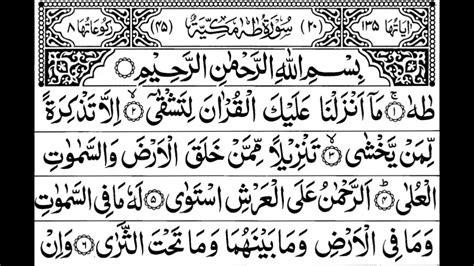 اٰیَاتُهَا ۱۳۵ (۲۰) سُوْرَةُ طٰهٰ مَكِّيَّةٌ (۴۵) رُكُوْعَاتُهَا ۸
بِسْمِ اللّٰهِ الرَّحْمٰنِ الرَّحِيْمِ ۝
طٰهٰ ۝۱ مَاۤ اَنْزَلْنَا عَلَيْكَ الْقُرْاٰنَ لِتَشْقٰۤى ۝۲ اِلَّا تَذْكِرَةً
لِّمَنْ يَّخْشٰى ۝۳ تَنْزِيْلًا مِّمَّنْ خَلَقَ الْاَرْضَ وَالسَّمٰوٰتِ
الْعُلٰى ۝۴ اَلرَّحْمٰنُ عَلَى الْعَرْشِ اسْتَوٰى ۝۵ لَهٗ مَا فِى السَّمٰوٰتِ
وَمَا فِى الْاَرْضِ وَمَا بَيْنَهُمَا وَمَا تَحْتَ الثَّرٰى ۝۶ وَاِنْ